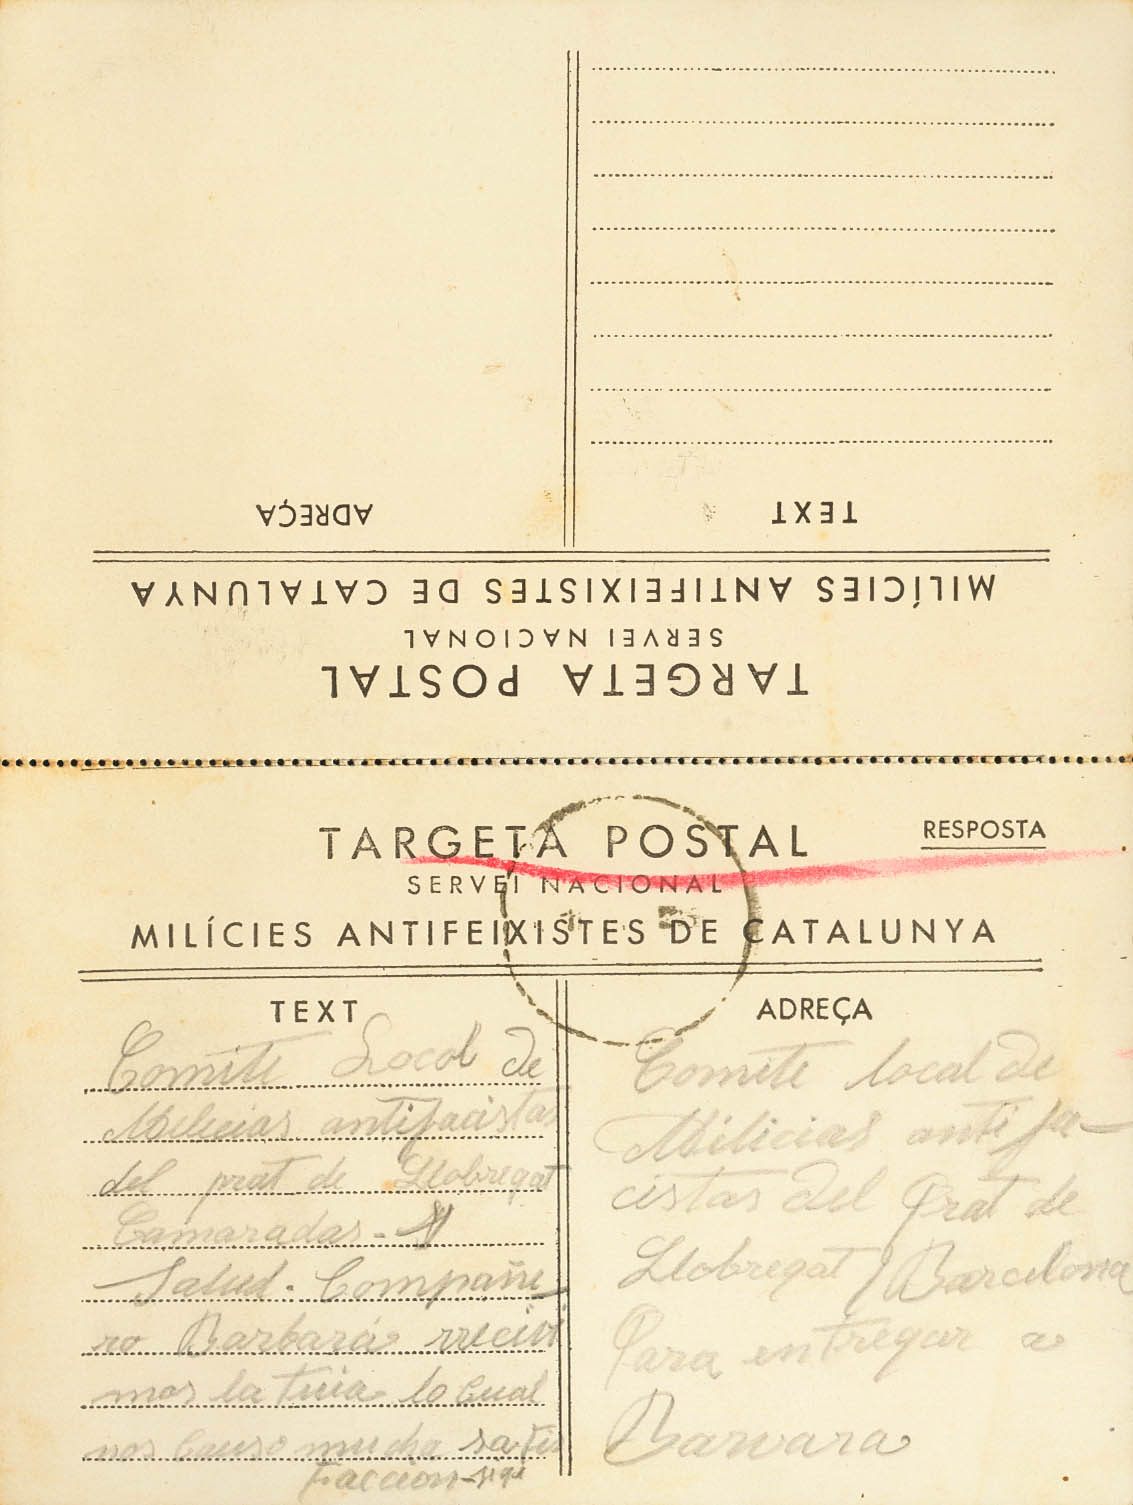 TEXT
ADREÇA
MILÍCIES ANTIFEIXISTES DE CATALUNYA
SERVEI NACIONAL
TARGETA POSTAL
TARGETA POSTAL
RESPOSTA
SERVEI NACIONAL
MILÍCIES ANTIFEIXISTES DE CATALUNYA
TEXT
Comite Local de
Milicias antifacistas
del prat de Llobregat
Camaradas -
Salud - Compañe
ro Barbará rrecivi
mos la tuia lo Cual
nos Causo mucha satis
faccion - sige
ADREÇA
Comite local de
Milicias anti fa-
cistas del Prat de
Llobregat / Barcelona
Para entregar a
Barvara